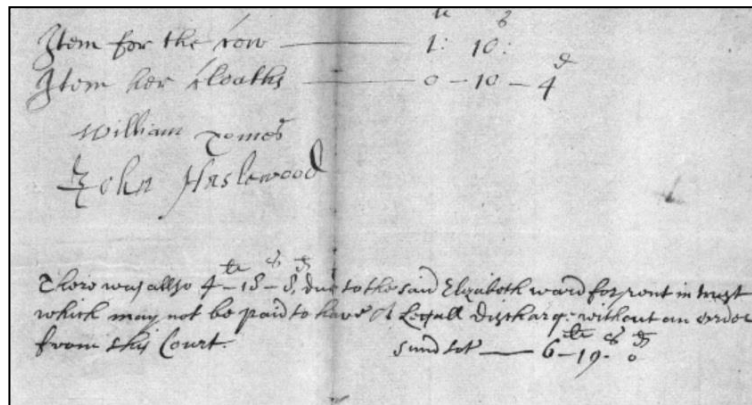 li s
Item for the Cow — 1: 10:
d
Item her Cloaths — 0 - 10 - 4
William Tomes
John Haslewood
li s d
There was allso 4 - 18 - 8 due to the said Elizabeth ward for rent in trust
which may not be paid to have A Legall discharge without an order
li s d
from this Court. sum tot — 6 - 19 - 0